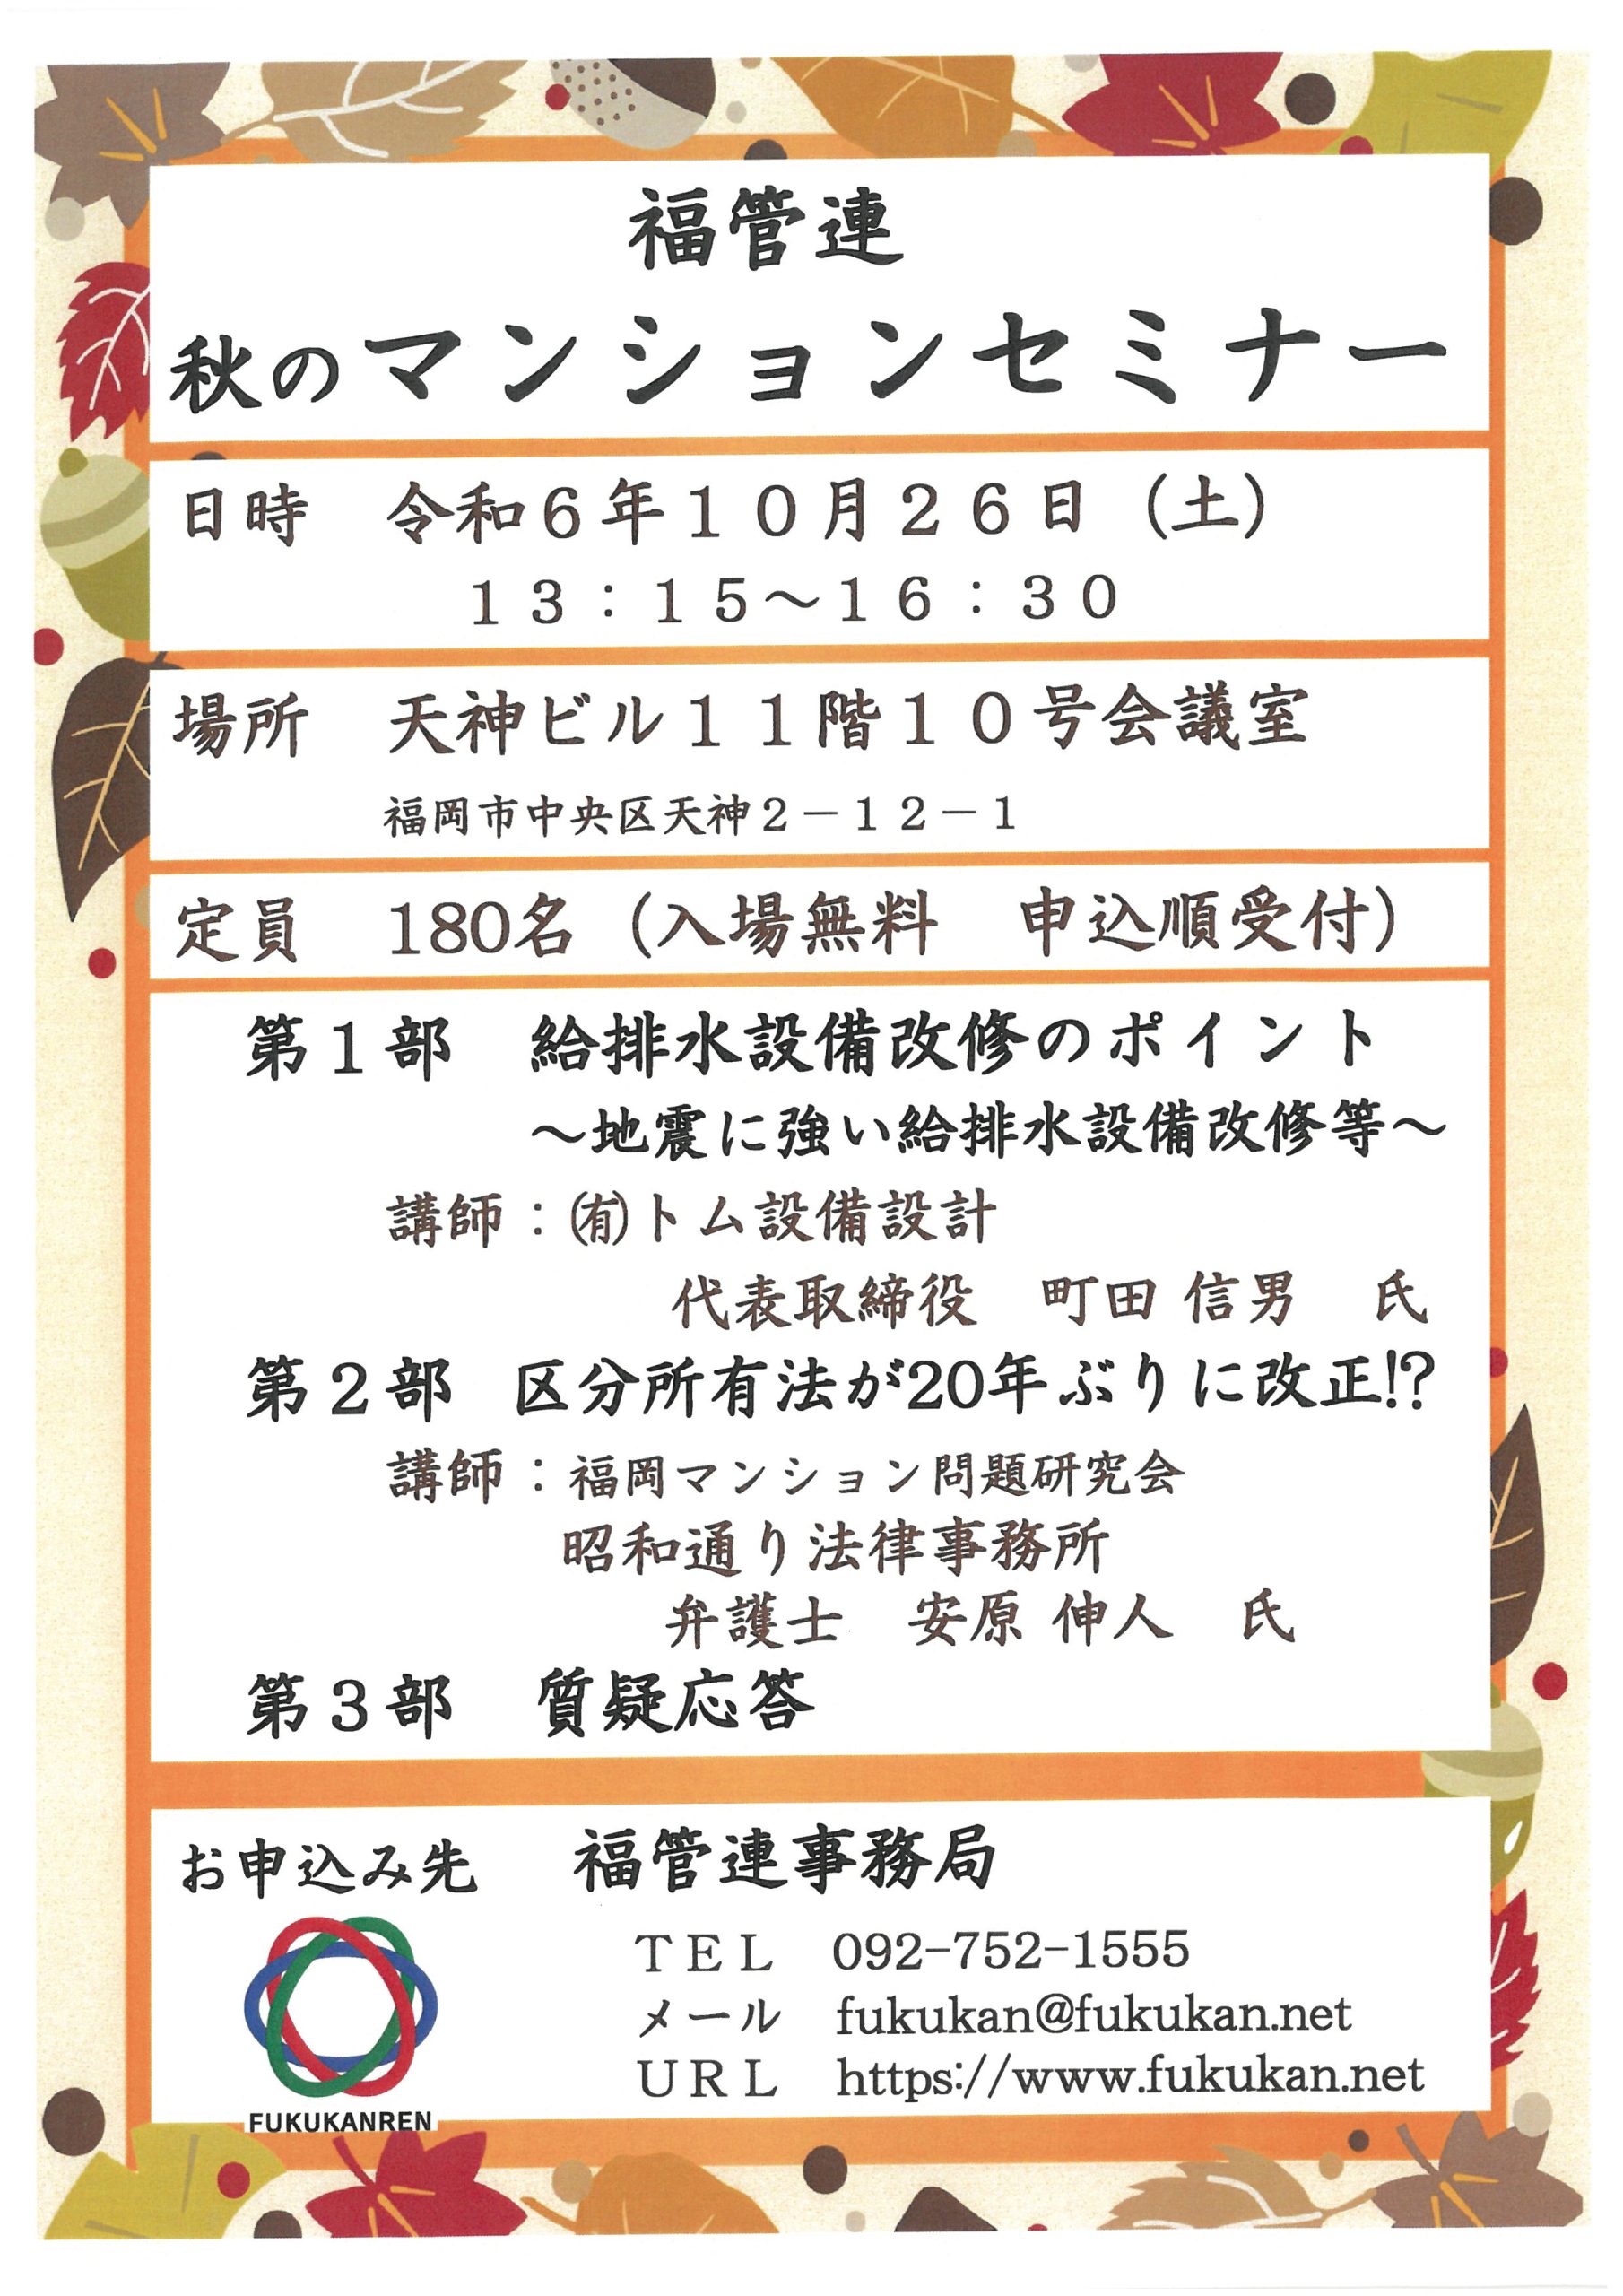 福管連
秋のマンションセミナー
日時　令和６年１０月２６日（土）
１３：１５～１６：３０
場所　天神ビル１１階１０号会議室
福岡市中央区天神２－１２－１
定員　180名（入場無料　申込順受付）
第１部　給排水設備改修のポイント
～地震に強い給排水設備改修等～
講師：㈲トム設備設計
代表取締役　町田 信男　氏
第２部　区分所有法が20年ぶりに改正⁉
講師：福岡マンション問題研究会
昭和通り法律事務所
弁護士　安原 伸人　氏
第３部　質疑応答
お申込み先　福管連事務局
ＴＥＬ　092-752-1555
メール　fukukan@fukukan.net
ＵＲＬ　https://www.fukukan.net
FUKUKANREN